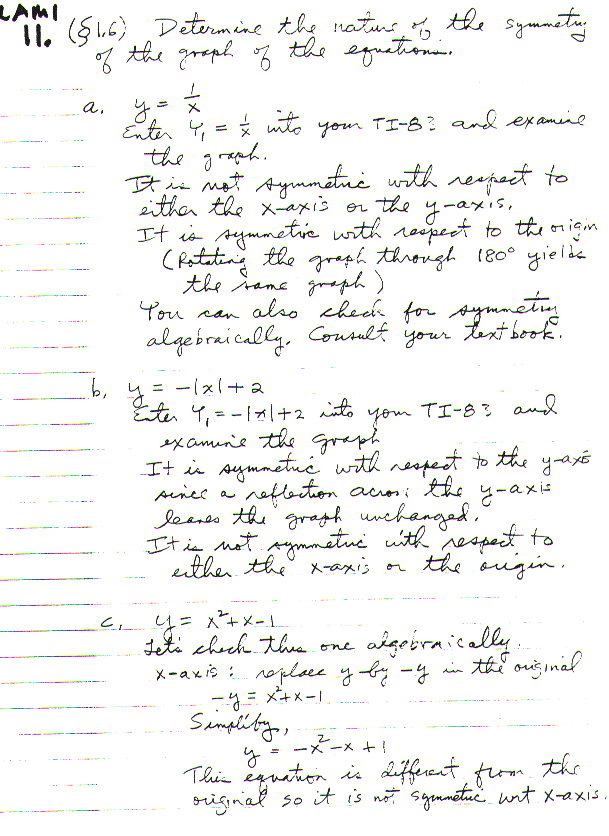 LAM1
11. (§1.6) Determine the nature of the symmetry
of the graph of the equations.
a. y = 1/x
Enter Y₁ = 1/x into your TI-83 and examine
the graph.
It is not symmetric with respect to
either the x-axis or the y-axis.
It is symmetric with respect to the origin
(Rotating the graph through 180° yields
the same graph)
You can also check for symmetry
algebraically. Consult your textbook.
b. y = -|x|+2
Enter Y₁ = -|x|+2 into your TI-83 and
examine the graph
It is symmetric with respect to the y-axis
since a reflection across the y-axis
leaves the graph unchanged.
It is not symmetric with respect to
either the x-axis or the origin.
c. y = x²+x-1
Let's check this one algebraically.
x-axis: replace y by -y in the original
-y = x²+x-1
Simplify,
y = -x²-x+1
This equation is different from the
original so it is not symmetric wrt x-axis.